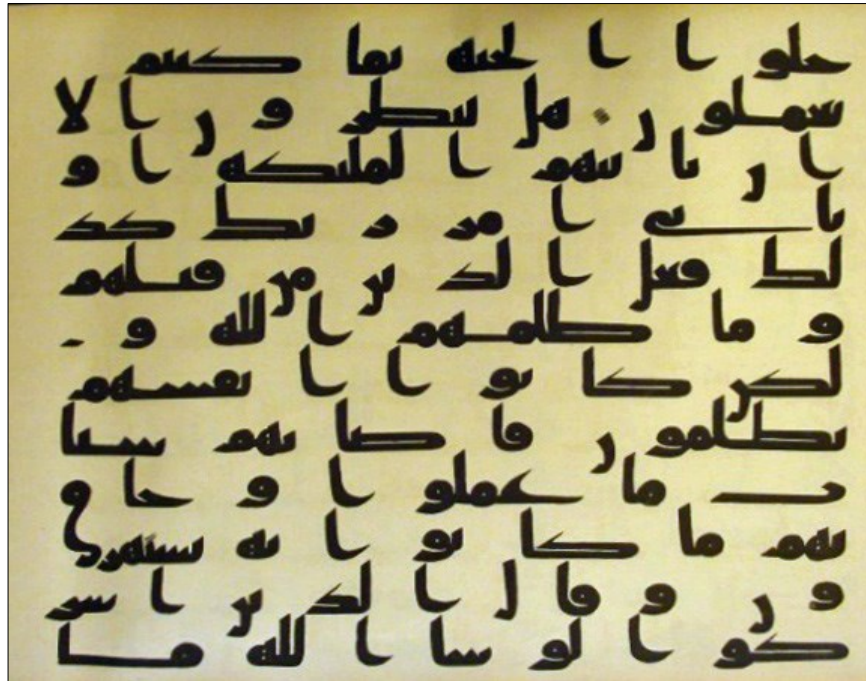 خلوا الجنة بما كنتم
تعملون هل ينظرون الا
ان تاتيهم الملئكة او
ياتي امر ربك كذ
لك فعل الذين من قبلهم
وما ظلمهم الله و
لكن كانوا انفسهم
يظلمون فاصابهم سيا
ت ما عملوا وحاق
بهم ما كانوا به يستهز
ون وقال الذين اشر
كوا لو شا الله ما